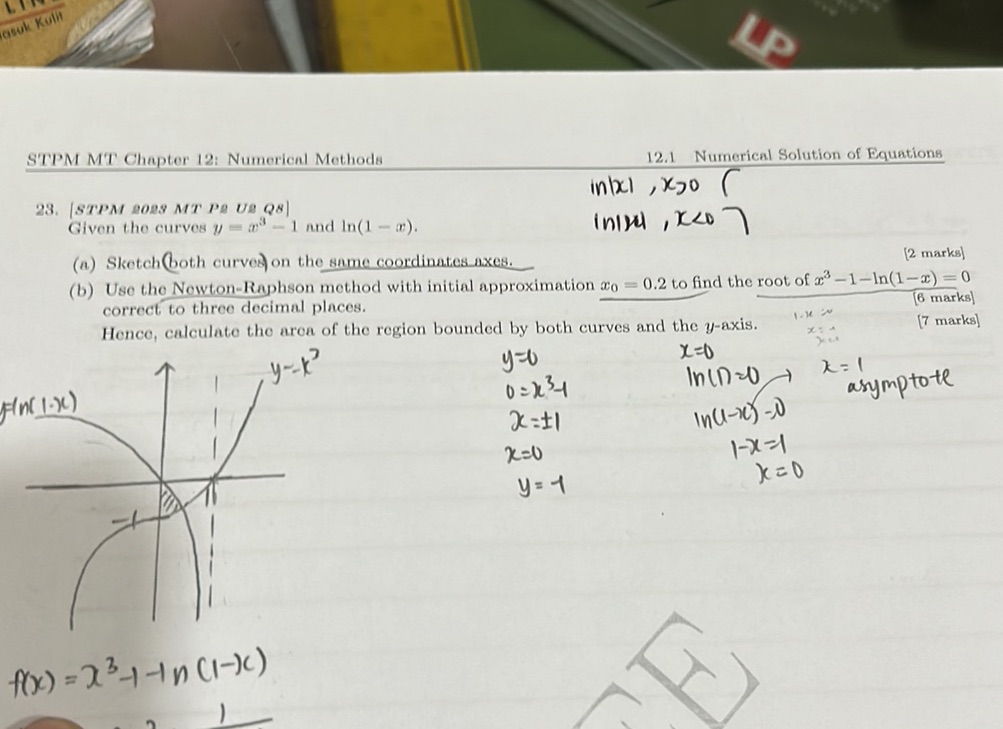 asuk Kulit
LP
STPM MT Chapter 12: Numerical Methods
12.1 Numerical Solution of Equations
in|x| , x>0
in|x| , x<0
23. [STPM 2023 MT P2 U2 Q8]
Given the curves y = x³ − 1 and ln(1 − x).
(a) Sketch both curves on the same coordinates axes.
[2 marks]
(b) Use the Newton-Raphson method with initial approximation x₀ = 0.2 to find the root of x³ − 1 − ln(1 − x) = 0
correct to three decimal places.
[6 marks]
Hence, calculate the area of the region bounded by both curves and the y-axis.
[7 marks]
y=ln(1-x)
y=x³
-1
y=0
0=x³-1
x=±1
x=0
y=-1
x=0
ln(1)=0
ln(1-x)=0
1-x=1
x=0
x=1
asymptote
f(x) = x³-1-ln(1-x)
1
TE